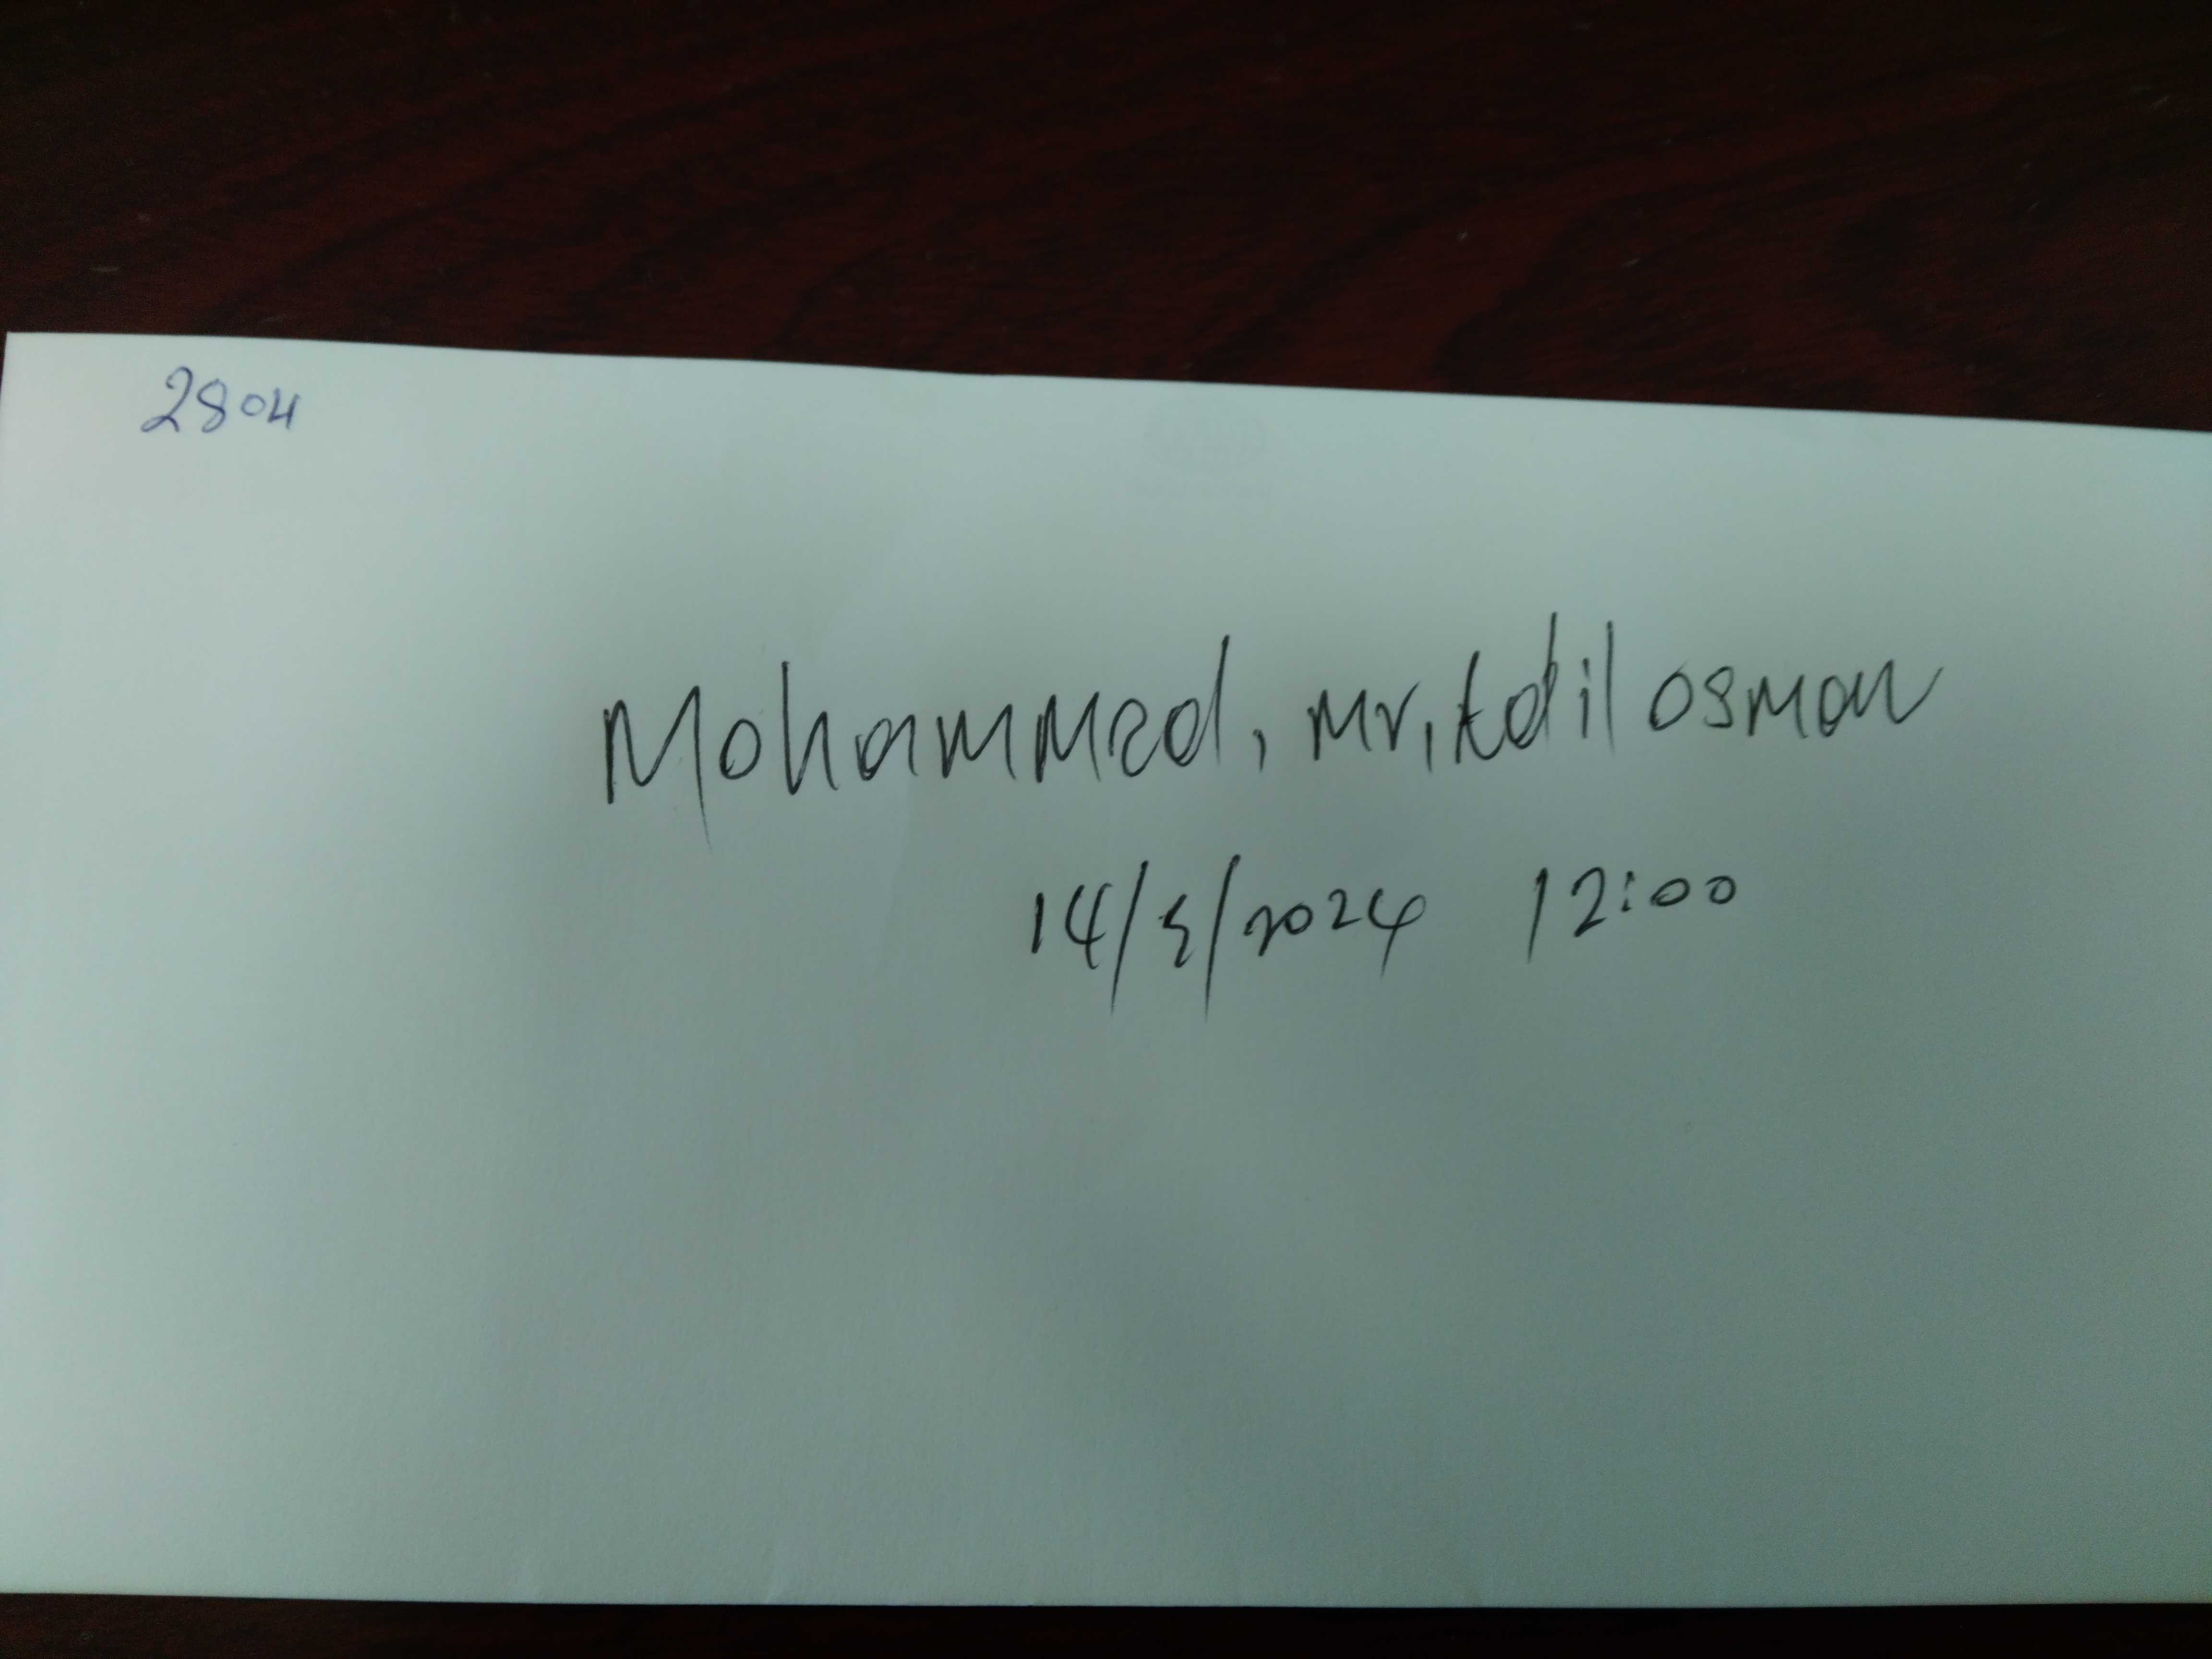 2804
Mohammed, Mr, Adil osman
14/5/2024 12:00